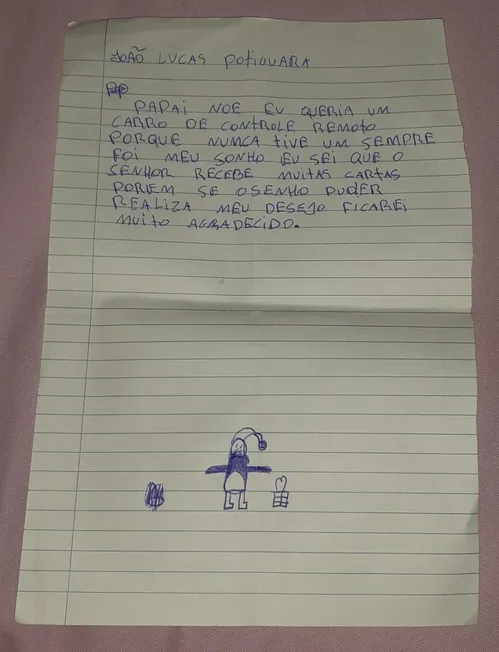 JOÃO LUCAS POTIGUARA
PAPAI NOE EU QUERIA UM
CARRO DE CONTROLE REMOTO
PORQUE NUNCA TIVE UM SEMPRE
FOI MEU SONHO EU SEI QUE O
SENHOR RECEBE MUITAS CARTAS
PORIEM SE O SENHO PUDER
REALIZA MEU DESEJO FICAREI
MUITO AGRADECIDO.